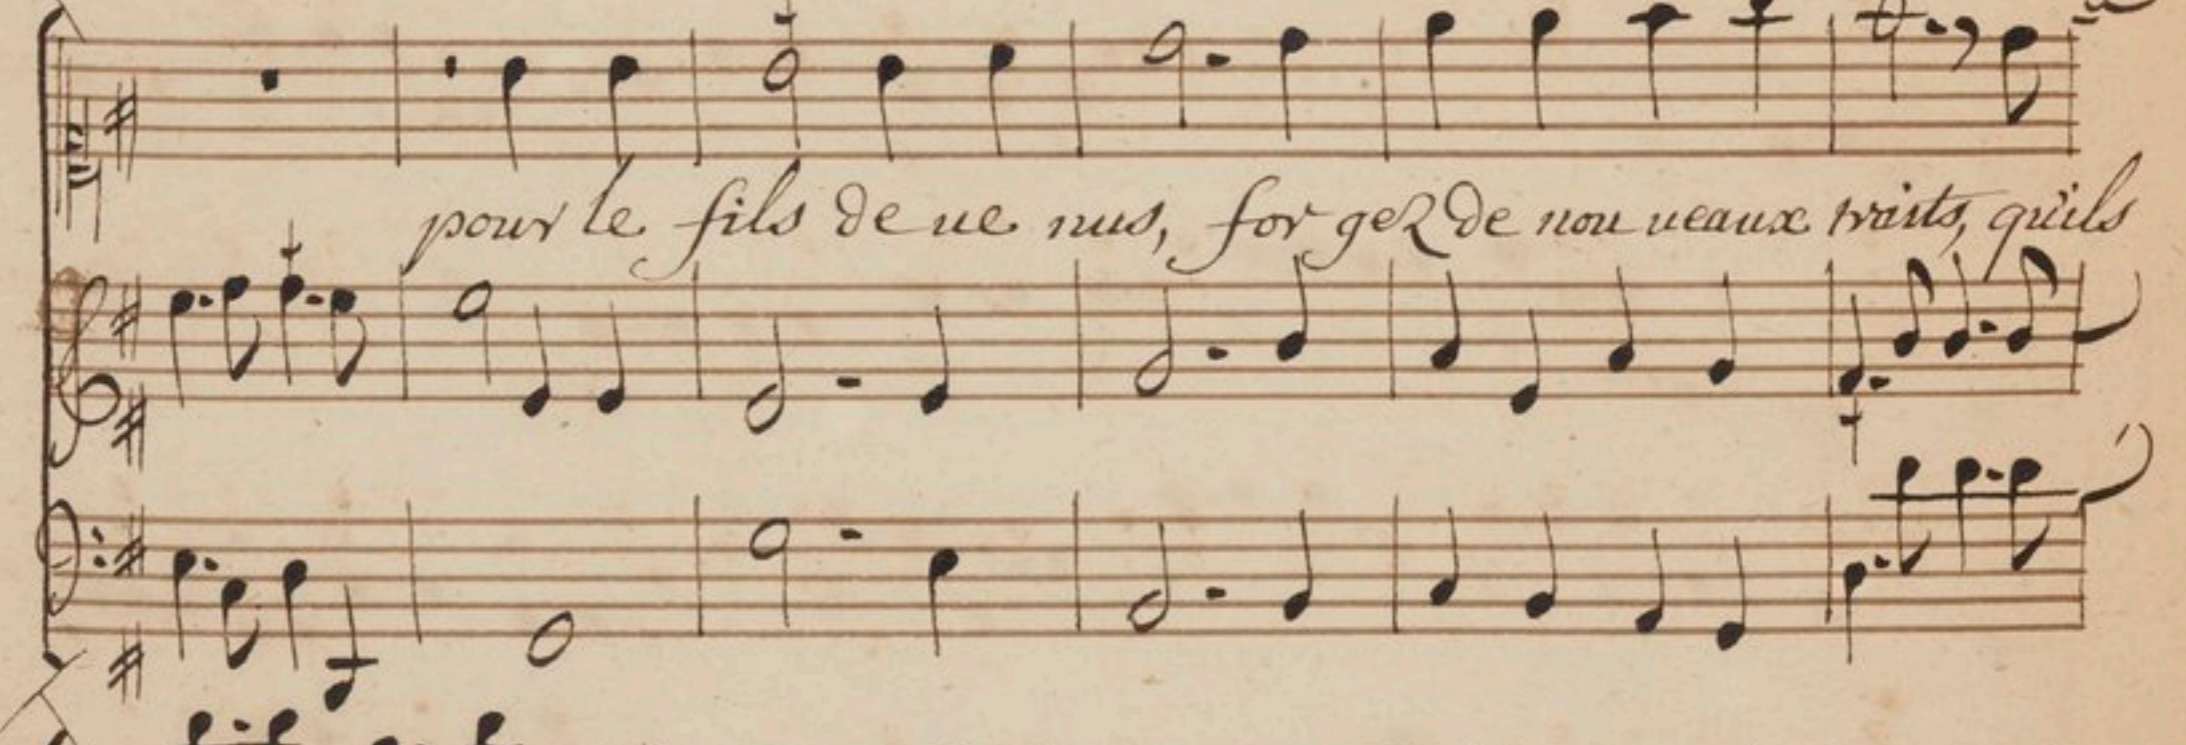 pour le fils de ve nus, for gez de nou veaux traits, qu'ils